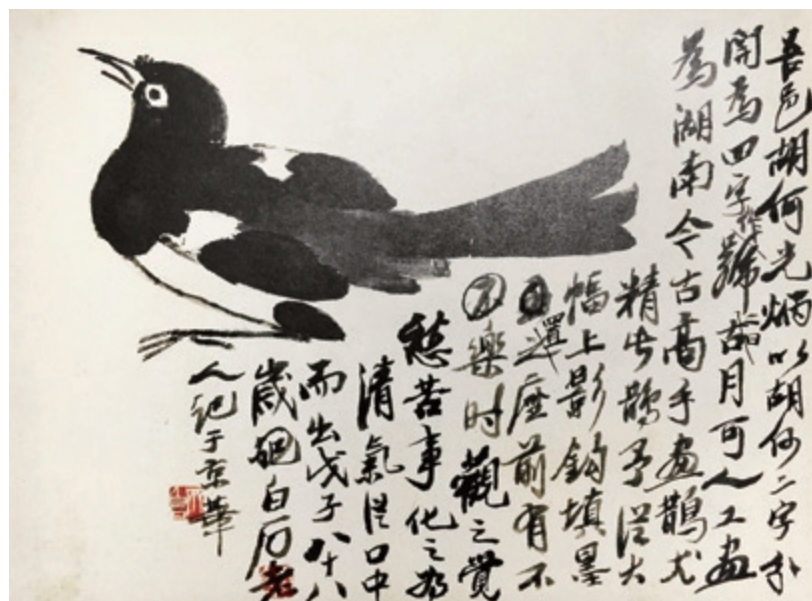 吾邑胡何光煵以胡何二字分
開為四字作號古月可人工畫
為湖南今古高手畫鵲尤
精步鵲予從大
幅上影鈎填墨
置座前有不
樂时觀之覺
愁苦事化之為
清氣從口中
而出戊子八十八
歲硯白石老
人記于京華